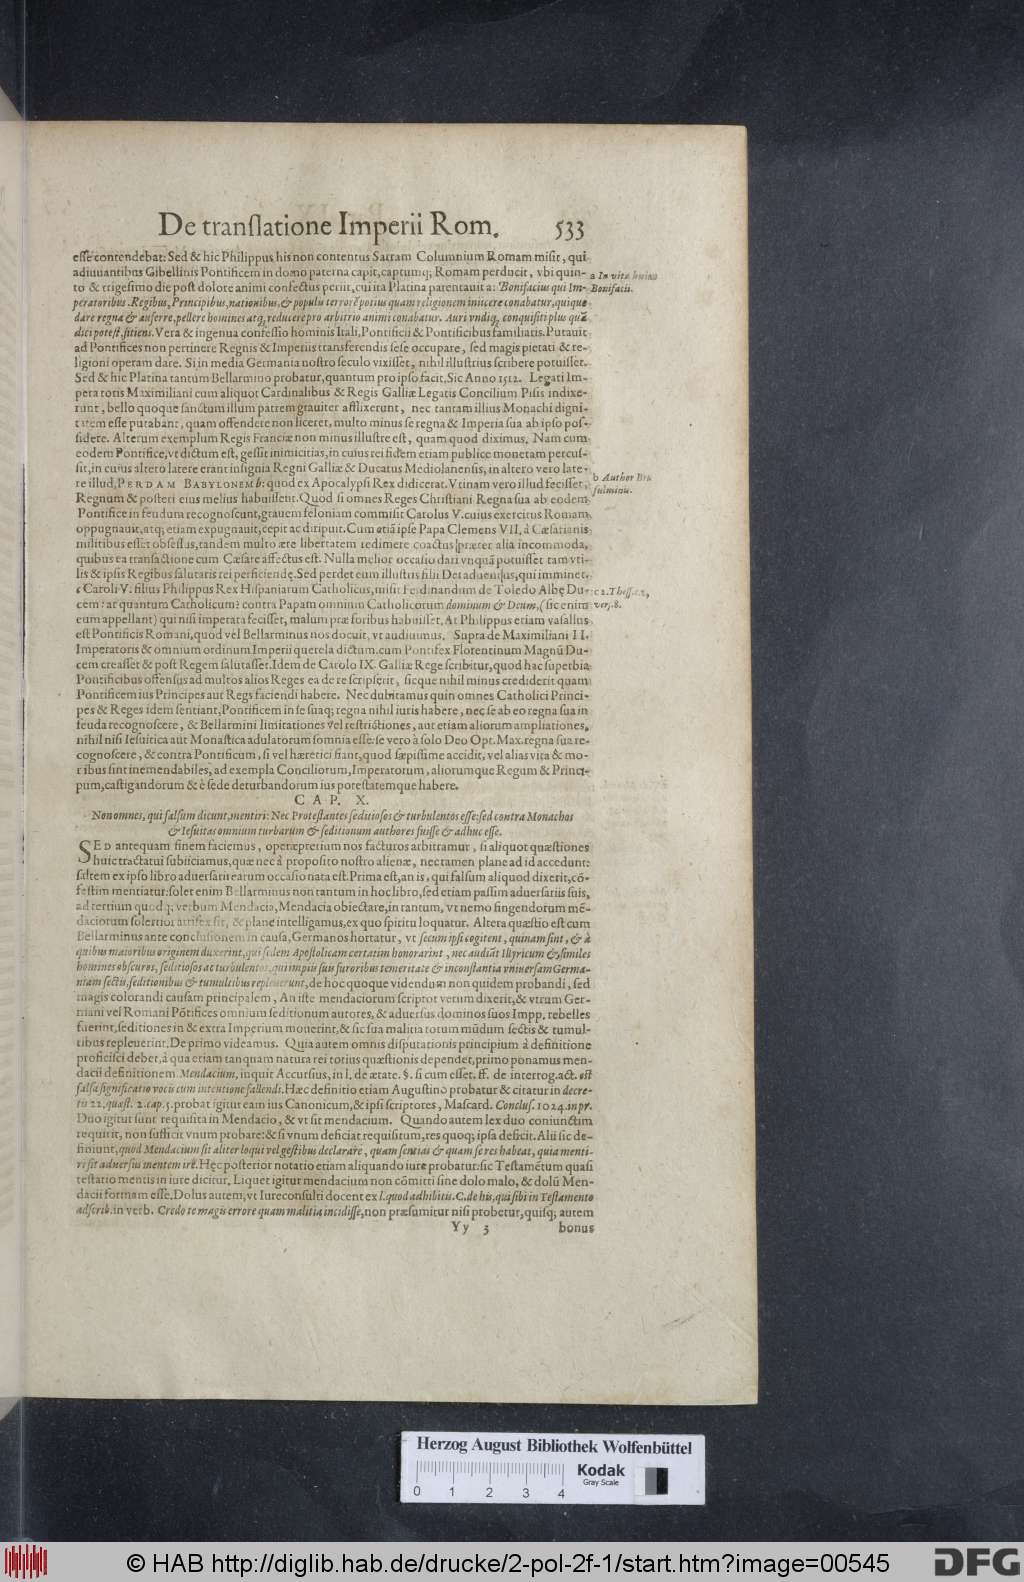 De translatione Imperii Rom. 533
esse contendebat: Sed & hic Philippus his non contentus Sarram Columnium Romam misit, qui
adiuuantibus Gibellinis Pontificem in domo paterna capit, captumq; Romam perducit, vbi quin-
to & trigesimo die post dolore animi confectus periit, cui ita Platina parentauit a: Bonifacius qui Im-
peratoribus, Regibus, Principibus, nationibus, & populis terrorē potius quam religionem iniicere conabatur, quique
dare regna & auferre, pellere homines atq; reducere pro arbitrio animi conabatur. Auri vndiq; conquisiti plus quā
dici potest, sitiens. Vera & ingenua confessio hominis Itali, Pontificii & Pontificibus familiaris. Putauit
ad Pontifices non pertinere Regnis & Imperiis transferendis sese occupare, sed magis pietati & re-
ligioni operam dare. Si in media Germania nostro seculo vixisset, nihil illustrius scribere potuisset.
Sed & hic Platina tantum Bellarmino probatur, quantum pro ipso facit. Sic Anno 1512. Legati Im-
peratoris Maximiliani cum aliquot Cardinalibus & Regis Galliæ Legatis Concilium Pisis indixe-
runt, bello quoque sanctum illum patrem grauiter afflixerunt, nec tantam illius Monachi digni-
tatem esse putabant, quam offendere non liceret, multo minus se regna & Imperia sua ab ipso pos-
sidere. Alterum exemplum Regis Franciæ non minus illustre est, quam quod diximus. Nam cum
eodem Pontifice, vt dictum est, gessit inimicitias, in cuius rei fidem etiam publice monetam percus-
sit, in cuius altero latere erant insignia Regni Galliæ & Ducatus Mediolanensis, in altero vero late-
re illud, PERDAM BABYLONEM b: quod ex Apocalypsi Rex didicerat. Vtinam vero illud fecisset,
Regnum & posteri eius melius habuissent. Quod si omnes Reges Christiani Regna sua ab eodem
Pontifice in feudum recognoscunt, grauem feloniam commisit Carolus V. cuius exercitus Romam
oppugnauit, atq; etiam expugnauit, cepit ac diripuit. Cum etiā ipse Papa Clemens VII, à Cæsarianis
militibus esset obsessus, tandem multo ære libertatem redimere coactus præter alia incommoda,
quibus ea transactione cum Cæsare affectus est. Nulla melior occasio dari vnquā potuisset tam vti-
lis & ipsis Regibus salutaris rei perficiendę. Sed perdet eum illustris filii Dei aduentus, qui imminet.
c Caroli V. filius Philippus Rex Hispaniarum Catholicus, misit Ferdinandum de Toledo Albę Du-
cem: at quantum Catholicum? contra Papam omnium Catholicorum dominum & Deum, (sic enim
eum appellant) qui nisi imperata fecisset, malum præ foribus habuisset. At Philippus etiam vasallus
est Pontificis Romani, quod vel Bellarminus nos docuit, vt audiuimus. Supra de Maximiliani II.
Imperatoris & omnium ordinum Imperii querela dictum, cum Pontifex Florentinum Magnū Du-
cem creasset & post Regem salutasset. Idem de Carolo IX. Galliæ Rege scribitur, quod hac superbia
Pontificibus offensus ad multos alios Reges ea de re scripserit, sicque nihil minus crediderit quam
Pontificem ius Principes aut Regs faciendi habere. Nec dubitamus quin omnes Catholici Princi-
pes & Reges idem sentiant, Pontificem in se suaq; regna nihil iuris habere, nec se ab eo regna sua in
feuda recognoscere, & Bellarmini limitationes vel restrictiones, aut etiam aliorum ampliationes,
nihil nisi Iesuitica aut Monastica adulatorum somnia esse: se vero à solo Deo Opt. Max. regna sua re-
cognoscere, & contra Pontificum, si vel hæretici fiant, quod sæpissime accidit, vel alias vita & mo-
ribus sint inemendabiles, ad exempla Conciliorum, Imperatorum, aliorumque Regum & Princi-
pum, castigandorum & è sede deturbandorum ius potestatemque habere.
a In vita huius
Bonifacii.
b Author Bru
fulminu.
c 2. Thess. 2,
vers. 8.
CAP. X.
Non omnes, qui falsum dicunt, mentiri: Nec Protestantes seditiosos & turbulentos esse: sed contra Monachos
& Iesuitas omnium turbarum & seditionum authores fuisse & adhuc esse.
SED antequam finem faciemus, operæpretium nos facturos arbitramur, si aliquot quæstiones
huic tractatui subiiciamus, quæ nec à proposito nostro alienæ, nec tamen plane ad id accedunt:
saltem ex ipso libro aduersarii earum occasio nata est. Prima est, an is, qui falsum aliquod dixerit, cō-
festim mentiatur: solet enim Bellarminus non tantum in hoc libro, sed etiam passim aduersariis suis,
ad tertium quodq; verbum Mendacia, Mendacia obiectare, in tantum, vt nemo fingendorum mē-
daciorum solertior artifex sit, & plane intelligamus, ex quo spiritu loquatur. Altera quæstio est cum
Bellarminus ante conclusionem in causa, Germanos hortatur, vt secum ipsi cogitent, quinam sint, & à
quibus maioribus originem duxerint, qui sedem Apostolicam certatim honorarint, nec audiāt Illyricum & similes
homines obscuros, seditiosos ac turbulentos, qui impiis suis furoribus temeritate & inconstantia vniuersam Germa-
niam sectis, seditionibus & tumultibus repleuerunt, de hoc quoque videndum non quidem probandi, sed
magis colorandi causam principalem, An iste mendaciorum scriptor verum dixerit, & vtrum Ger-
mani vel Romani Pōtifices omnium seditionum autores, & aduersus dominos suos Impp. rebelles
fuerint, seditiones in & extra Imperium mouerint, & sic sua malitia totum mūdum sectis & tumul-
tibus repleuerint. De primo videamus. Quia autem omnis disputationis principium à definitione
proficisci debet, à qua etiam tanquam natura rei totius quæstionis dependet, primo ponamus men-
dacii definitionem. Mendacium, inquit Accursius, in l. de ætate. §. si cum esset. ff. de interrog. act. est
falsa significatio vocis cum intentione fallendi. Hæc definitio etiam Augustino probatur & citatur in decre-
tis 22. quæst. 2. cap. 5. probat igitur eam ius Canonicum, & ipsi scriptores, Mascard. Conclus. 1024. in pr.
Duo igitur sunt requisita in Mendacio, & vt sit mendacium. Quando autem lex duo coniunctim
requirit, non sufficit vnum probare: & si vnum deficiat requisitum, res quoq; ipsa deficit. Alii sic de-
finiunt, quod Mendacium sit aliter loqui vel gestibus declarare, quam sentias & quam se res habeat, quia menti-
ri sit aduersus mentem ire. Hęc posterior notatio etiam aliquando iure probatur: sic Testamētum quasi
testatio mentis in iure dicitur. Liquet igitur mendacium non cōmitti sine dolo malo, & dolū Men-
dacii formam esse. Dolus autem, vt Iureconsulti docent ex l. quod adhibitis. C. de his, qui sibi in Testamento
adscrib. in verb. Credo te magis errore quam malitia incidisse, non præsumitur nisi probetur, quisq; autem
Yy 3 bonus
Herzog August Bibliothek Wolfenbüttel
Kodak
Gray Scale
0 1 2 3 4
© HAB http://diglib.hab.de/drucke/2-pol-2f-1/start.htm?image=00545
DFG